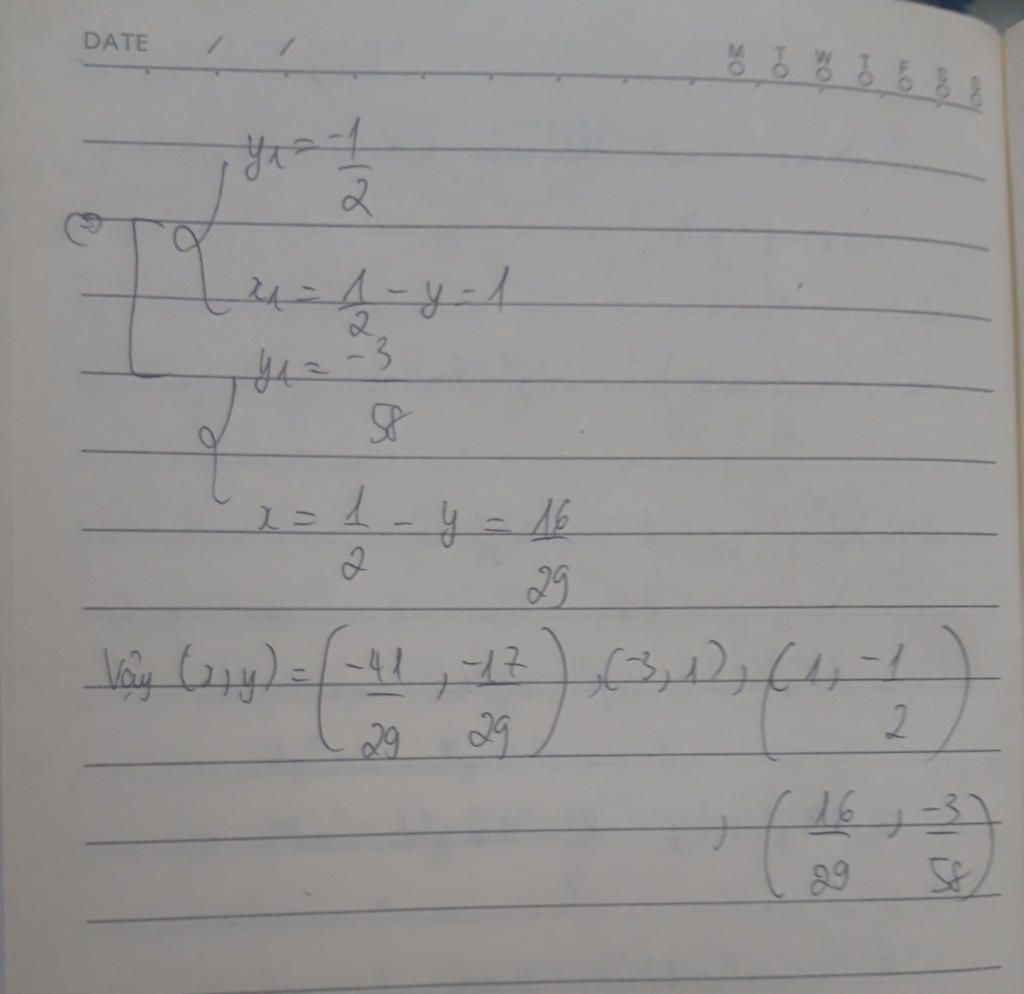 DATE / / M T W T F S S
y₁ = -1/2
(=)
x₁ = 1/2 - y = 1
y₁ = -3/58
x = 1/2 - y = 16/29
Vậy (x,y) = (-41/29, -17/29), (-3, 1), (1, -1/2)
, (16/29, -3/58)